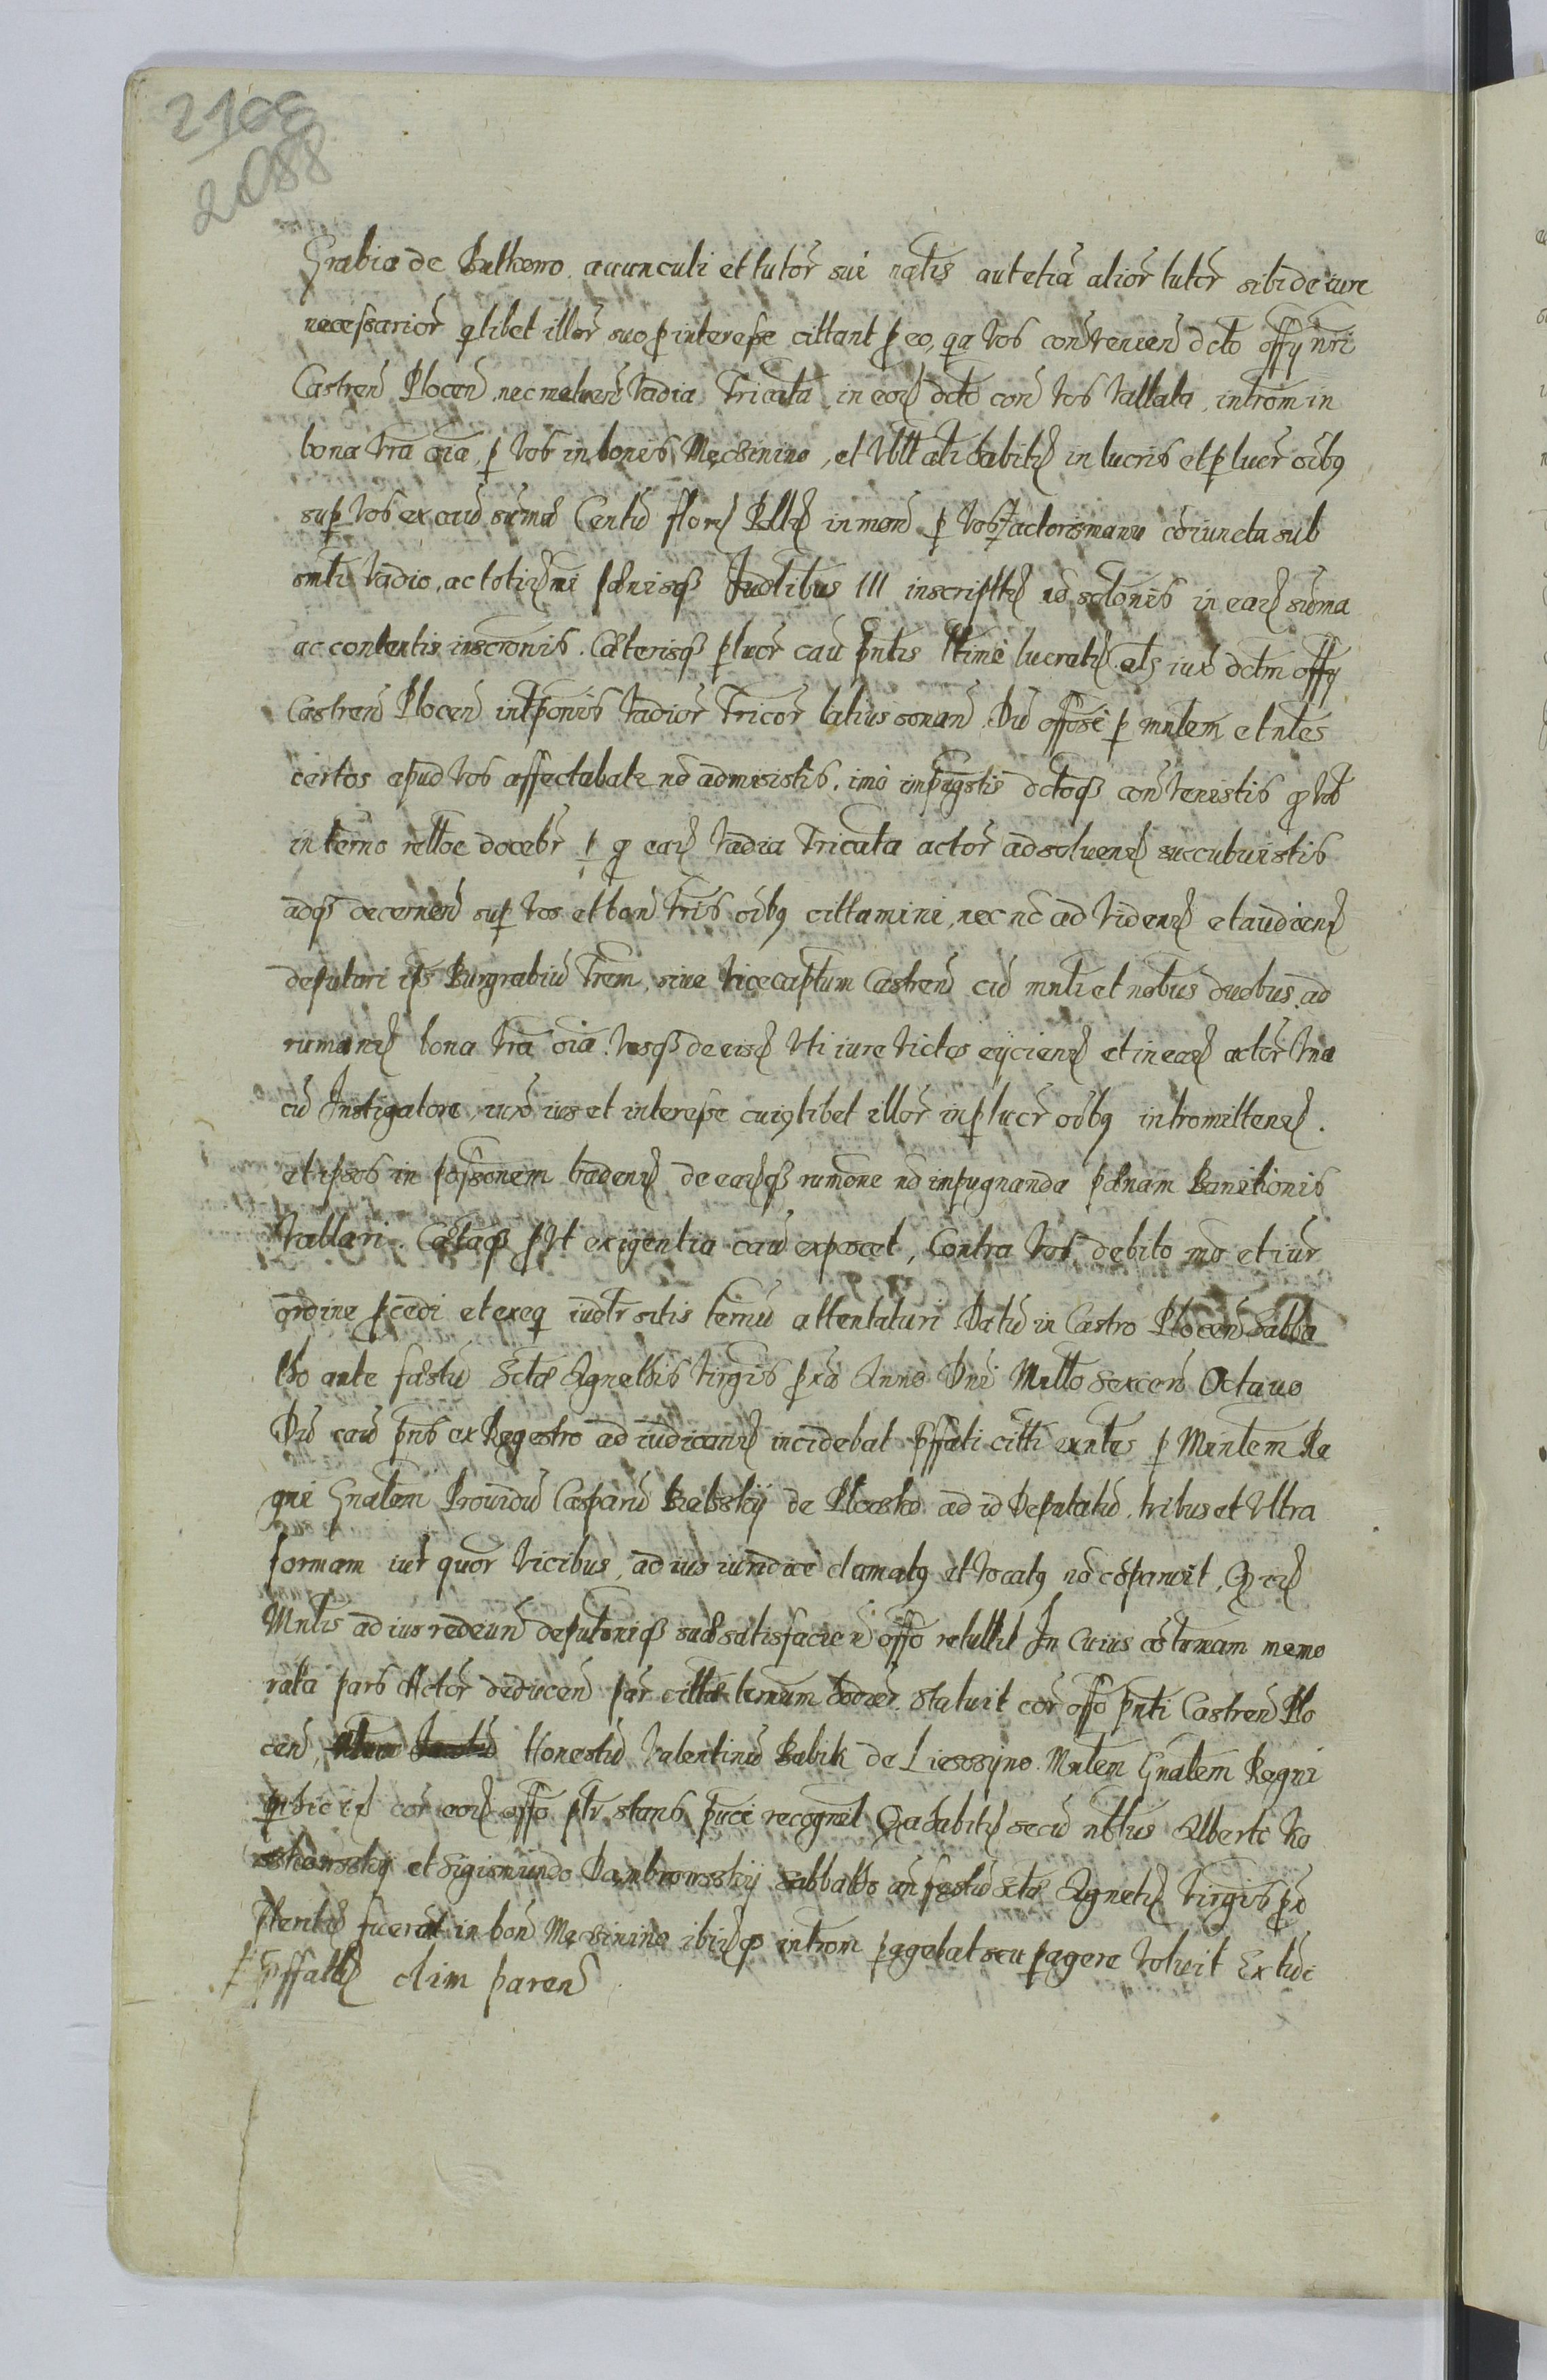 2100
2088
Grabie de Bulkowo auunculi et tutor sui natis aut etiā alior tutor sibi de iure
necessarior qlibet illor suo p interesse cittant p eo, qa Vos contrauen dcto offy nri
Castren Plocen, nec metuen Vadia Tricata in eod dcto con Vos Vallata, introm in
bona Vra oia, p Vos in bonis Męczinino, et Vbtt ati habitis in lucris et p lucr oibq
sup Vos ex cau suma Centū flor Pollis in mon p Vos actoris manu coiuncta sub
smti Vadio, ac totid mi pænisq Iudtibus III inscriptis nō sctonis in ead suma
ac contentis inscronis. Cæterisq p lucr cau pntis ltimè lucratis als iux dctm offy
Castren Plocen intponis Vadior Tricor latius sonan Dū offose p mntem et ntes
certos apud Vos affectabat nō admisistis, imo impugstis dctoq contrauenistis q Vob
in terno rettoe docebr p q ead Vadia Tricata actor ad soluend succubuistis
adq decernen sup Vos et bon Vris oibq cittamini, nec nō ad Videnᵈ et audienᵈ
deputari ips Burgrabiū Vrem, siue Vicecaptum Castren cū mnti et nobus duobus ad
rumanᵈ bona Vra oia Vosq de eisd Vti iure Victos eijcienᵈ et in ead actor Vna
cū Instigatore, iuxō ius et interesse cuiqlibet illor in p lucr oibq intromittenᵈ.
et ipsos in possonem tradenᵈ de eadq rumone nō impugnanda pænam Banitionis
Vallari. Cætaq pVt exigentia cau exposcet, Contra Vos debito mō et iur
ordine pcedi et exeq iudtr sitis ternū attentaturi Datū in Castro Plocen Sabba
tho ante fæstū Sctæ Agnethis Virgis pxō Anno Dni Millo Sexcen Octauo
Dū cau pns ex Regestro ad iudicanᵈ incidebat pffati citti exntes p Mintem Re
gni Gnalem Prouidū Casparū Bielsskij de Plocsko ad id Deputatū, tribus et Vltra
formam iur quor Vicibus, ad ius iuridicè clamatq et Vocatq nō coparuit, Qzid
Mntis ad ius redeun deputoniq suæ satisfacien offo retullit In Cuius cotumam memo
rata pars Actor deducen par cittæ ternum hodier. Statuit cor offo pnti Castren Plo
cen, Honestū Valentinū Babik de Liesssyno. Mntem Gnalem Regni
qi hic id cor eod offo ptr stans puce recognit Qa habitis secū nbtus Alberti Ko
skowsskij et Sigismundo Dambrowsskij sabbatho an festū sctæ Agnetis Virgis pxō
pteritū fuerat in bon Męczinino ibidq introm pagebat seu pagere Voluit Ex tūc
pffatts olim paren